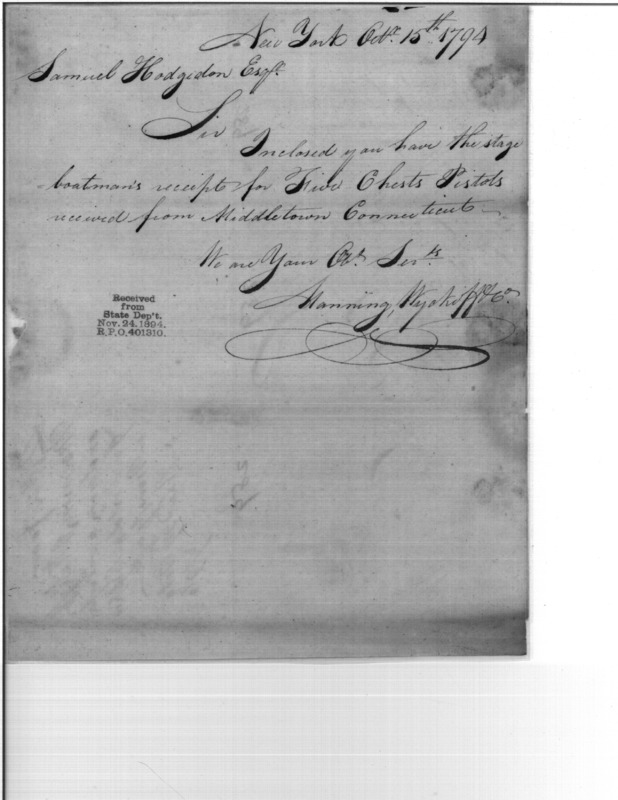 New York Octr. 15th 1794
Samuel Hodgedon Esqr.
Sir
Inclosed you have the stage
boatman's receipt for Five Chests Pistols
received from Middletown Connecticut
We are Your Obt. Servts
Manning, Wyckoff & Co.
Received
from
State Dep't.
Nov. 24. 1894.
R.P.O. 401310.